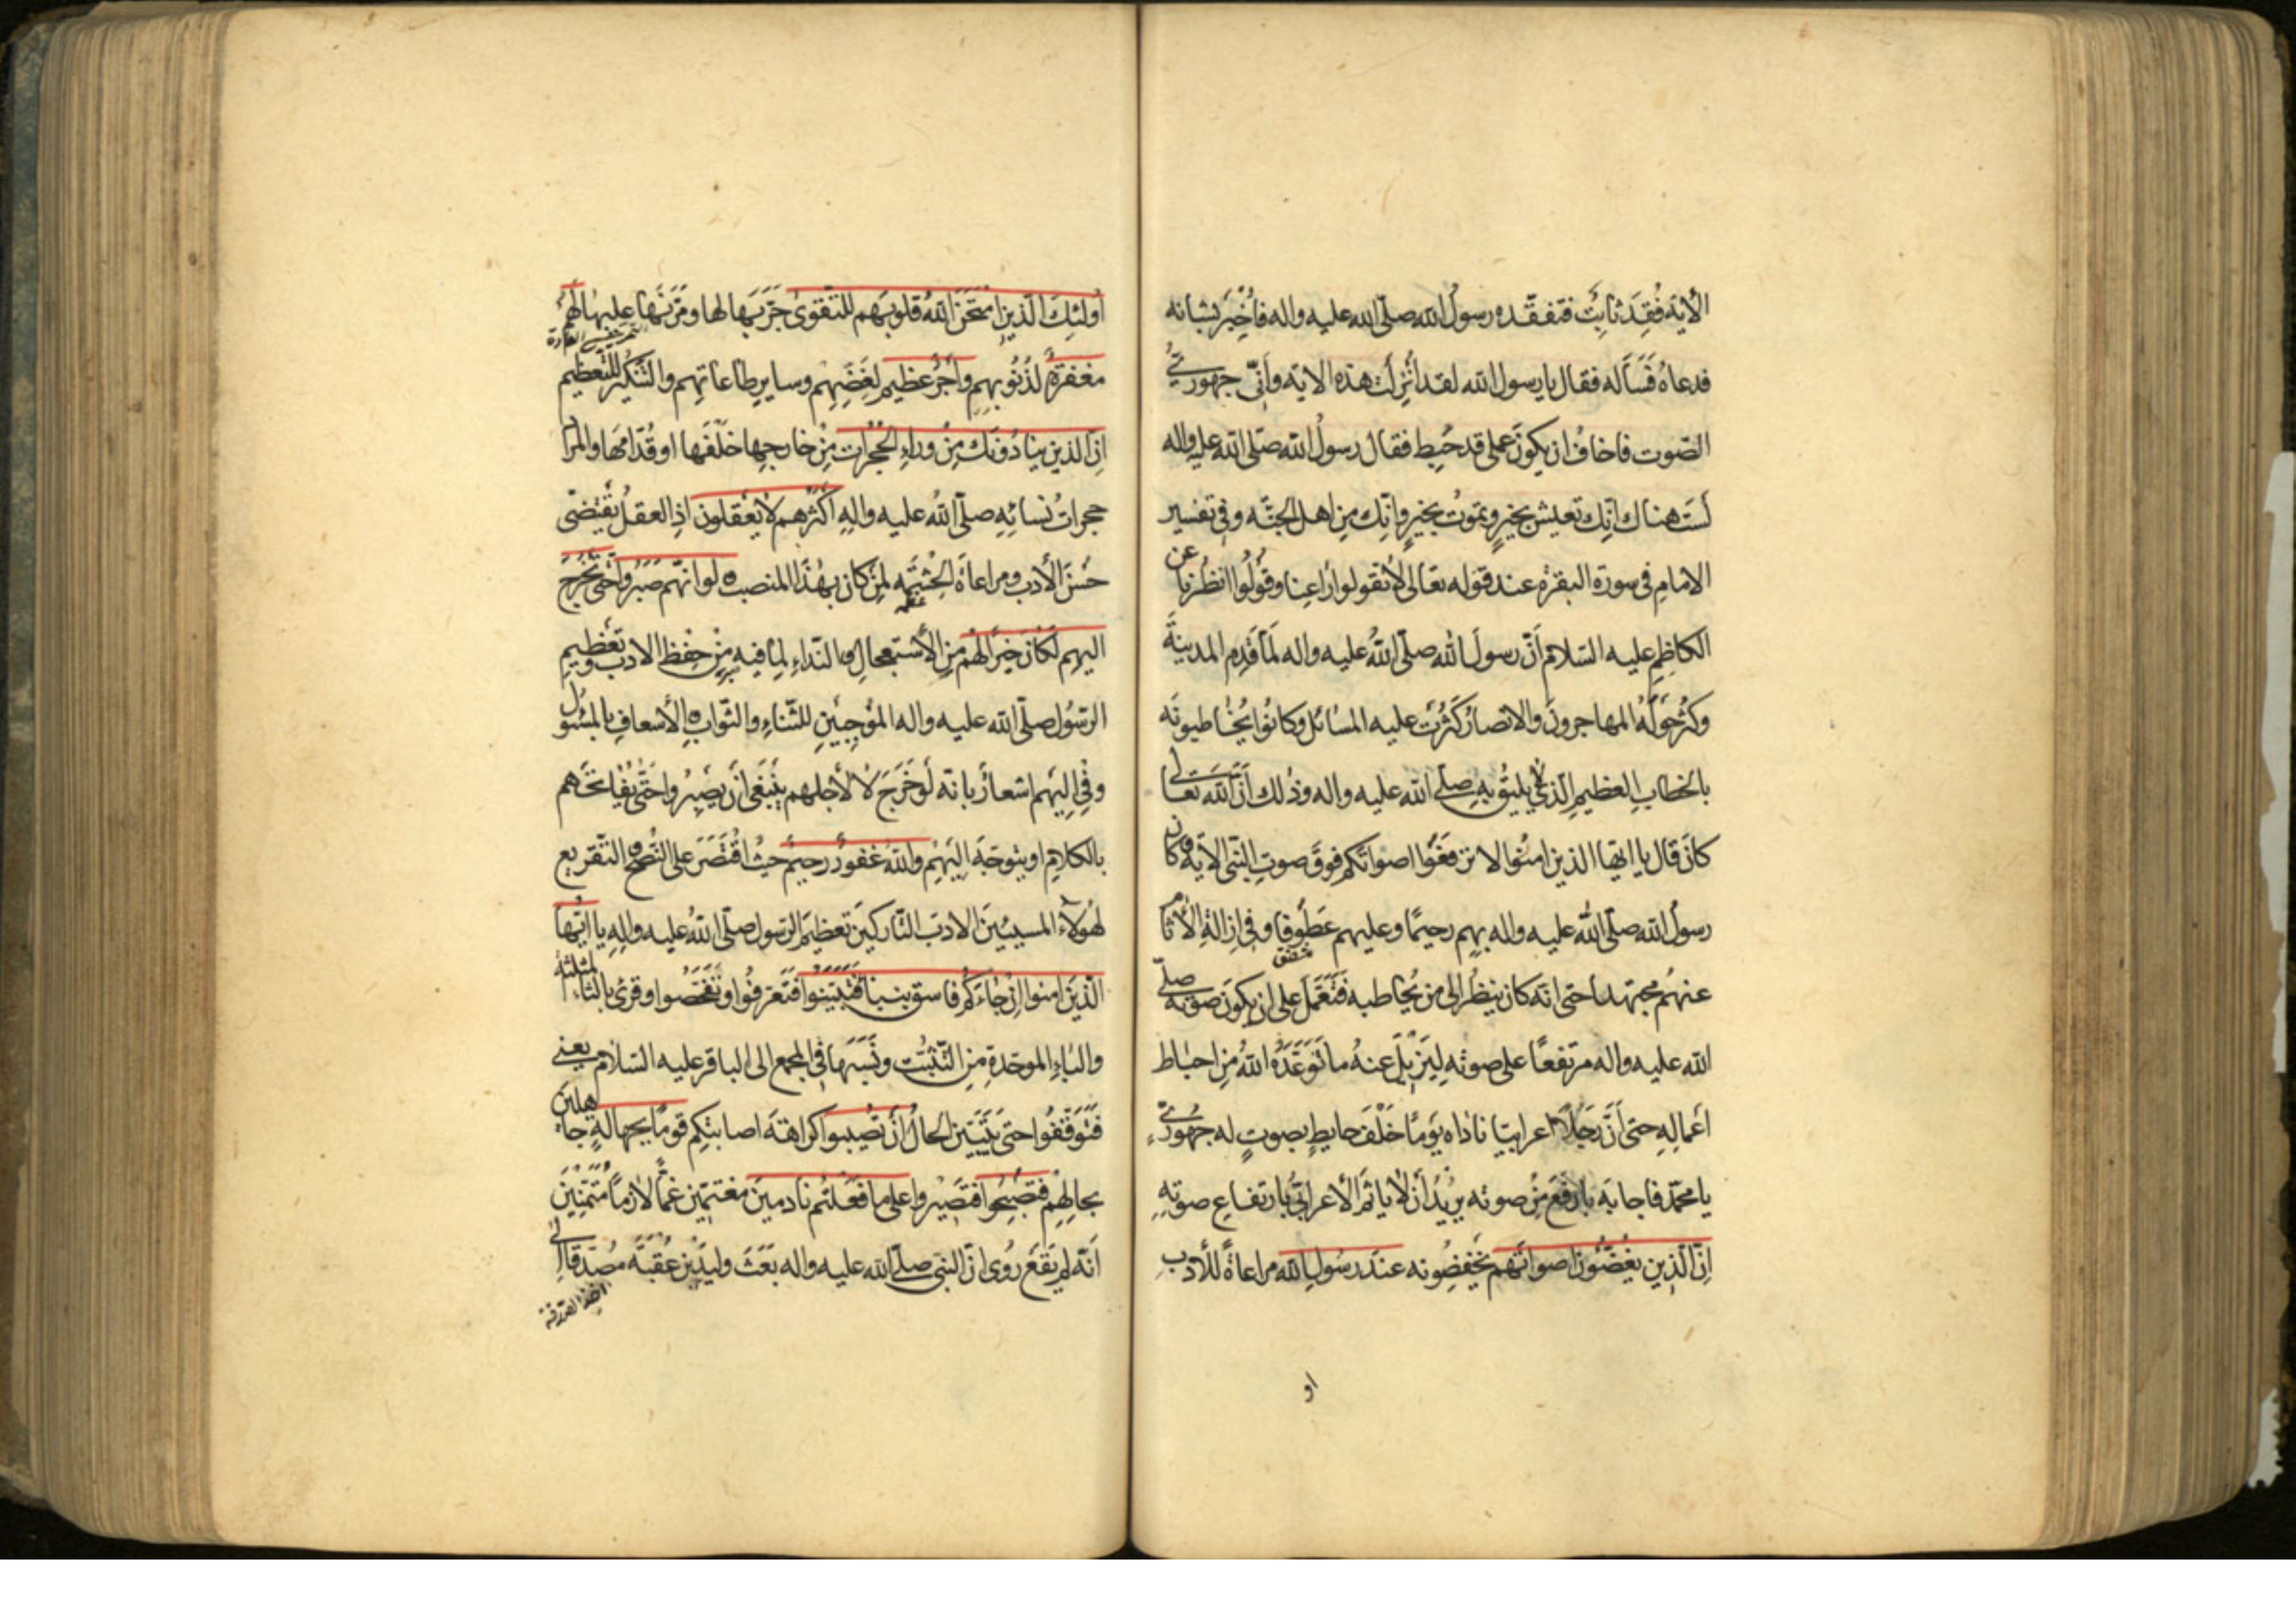 الأية فُقِدَ ثابِتٌ فتفقّده رسولُ الله صلّى الله عليه واله فأُخبِرَ بشانه
فدعاهُ فَسَأله فقال يا رسول الله لقد أُنزِلَت هذه الاية وأنّى جهورىُّ
الصّوت فاخافُ ان يكونَ عملى قد حَبِط فقال رسولُ الله صلّى الله عليه واله
لَستَ هناك إنّك تعيش بخيرٍ وتموتُ بخيرٍ وإنّك مِن اهل الجنّه وفى تفسير
الامامِ فى سورة البقرة عند قوله تعالى لا تقولوا راعِنا وقُولُوا انظُرنا عن
الكاظِمِ عليه السّلام أنّ رسولَ الله صلّى اللهُ عليه واله لمّا قَدِم المدينةَ
وكثُر حَولَهُ المهاجرونَ والانصارُ كَثُرَت عليه المسائل وكانُوا يُخاطبونَه
بالخطابِ العظيمِ الّذى لا يليقُ بِهِ صلّى الله عليه واله وذلك أنّ الله تعالى
كانَ قال يا ايّها الذين امنُوا لا ترفعُوا اصواتكم فوقَ صوتِ النبّى الأية وكان
رسولُ الله صلّى الله عليه واله بهِم رحيمًا وعليهِم عَطُوفا وفى ازالةِ الأثام
مشفق
عنهُم مجتهدا حتى انّه كان ينظُر الى من يُخاطبه فَتَعَمَّلَ على ان يكونَ صوته صلّى
الله عليه واله مرتفعًا على صوتِه لِيُزيلَ عنهُ ما تَوَعّدَهُ اللهُ مِن احباط
أعمالِهِ حتى أنّ رَجُلًا اعرابيّا ناداه يَومًا خَلْفَ حايطٍ بصوتٍ له جهورىّ
يا محمّد فاجابَه بارفعَ مِن صوته يريدُ أن لا ياثم الأعرابىُّ بارتفاعِ صوتهِ
إنّ الّذين يغُضّون اصواتَهُم يخفِضُونه عندَ رسُولِ الله مراعاةً للأدبِ
او
أولئِكَ الّذين امتحَنَ اللهُ قلوبَهم للتّقوى جَرَّبَها لها ومَرَّنَها عليها لَهُم
مغفرةٌ لذُنُوبِهِم وأجرٌ عظيم لغَضِّهِم وسايرِ طاعاتِهِم والتنكيرُ للتّعظيم
إنّ الذين ينادُونَك مِن وراءِ الحُجُرات مِن خارِجِها خلْفَها او قُدّامها والمراد
حجراتُ نسائِهِ صلّى اللهُ عليه والِهِ أكثرُهم لا يَعقلون اذِ العقلُ يقتضى
حُسنَ الأدب ومراعاةَ الحِشمَةِ لِمَن كان بهذا المنصب ولو انّهم صَبَرُوا حتّى تَخرُجَ
اليهِم لَكانَ خيرًا لهُم مِن الأستعجالِ والنّداءِ لِما فيه مِن حِفظِ الادبِ وتعظيمِ
الرّسُول صلّى الله عليه واله المُوجِبَينِ للثّناءِ والثّوابِ والأسعافِ بالمَسئول
وفى إليهِم اشعارٌ بانّه لَو خَرَجَ لا لأجلهم ينبَغى أن يصبِرُوا حتّى يُفاتحَهم
بالكلامِ او يتوجّهَ اليهِم واللهُ غفورٌ رحيمٌ حيثُ اقتَصَرَ على النُّصحِ والتّقريع
لهؤلاءِ المسيئينَ الادبَ التّاركينَ تعظيمَ الرّسولِ صلّى اللهُ عليه والِهِ يا ايّها
الّذينَ امنوا إن جاءَكُم فاسق بنبأ فتَبَيّنُوا فتَعَرَّفُوا وتَفَحَّصُوا وقرئ بالثّاء المثلّثة
والباءِ الموحّدةِ مِنَ التثبّت ونَسَبَها فى المجمع الى الباقر عليه السّلام يعنى
فتَوَقّفُوا حتى يَتَبَيّنَ الحالُ أن تُصيبوا كراهةَ اصابتِكم قومًا بجهالةٍ جاهلين
بحالِهِم فتصبِحُوا فتَصيرُوا على ما فعَلتُم نادمينَ مغتمّين غمًّا لازمًا مُتَمَنّين
أنّه لم يَقَع رُوِى انّ النبى صلّى الله عليه واله بَعَثَ وليدَ بن عُقبَة مُصَدِّقًا الى